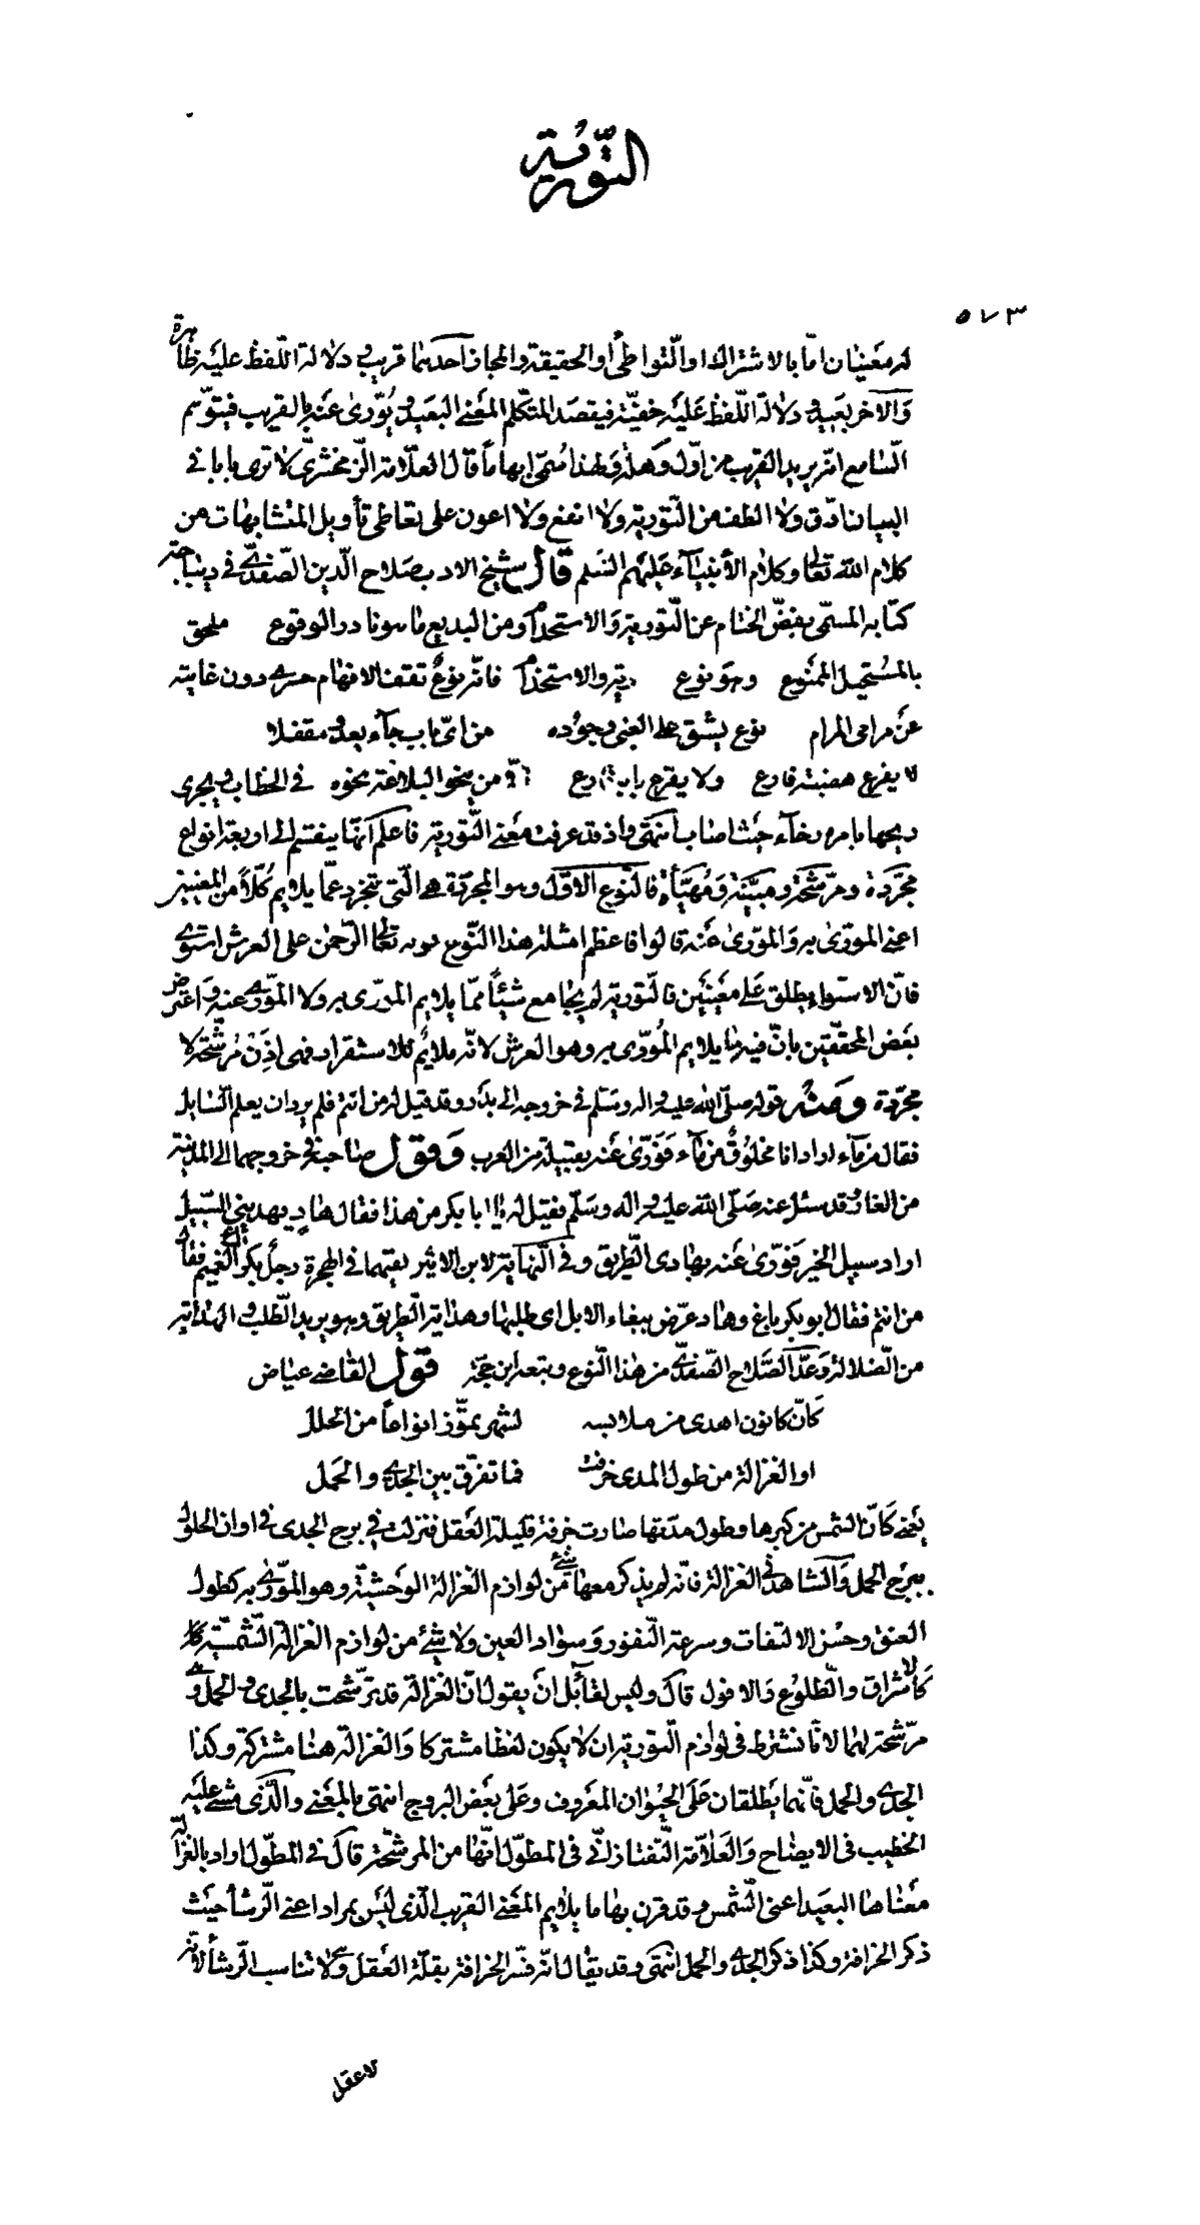 التّورية
٥٧٣
له معنيان امّا بالاشتراك او التّواطئ او الحقيقة والمجاز احدهما قريب و دلالة اللّفظ عليه ظاهرة
والآخر بعيد و دلالة اللّفظ عليه خفيّة فيقصد المتكلم المعنى البعيد و يورّى عنه بالقريب فيتوهّم
السّامع انّه يريد القريب من اوّل وهلة ولهذا سمّى ايهاماً قال العلّامة الزّمخشرىّ لا ترى بابا فى
البيان ادّق ولا الطف من التّورية ولا انفع ولا اعون على تعاطى تأويل المتشابهات من
كلام الله تعالى وكلام الأنبياء عليهم السّلم قال شيخ الادب صلاح الدّين الصّفدىّ فى ديباجة
كتابه المسمّى بفضّ الختام عن التّورية والاستخدام ومن البديع ما هو نادر الوقوع ملحق
بالمستحيل الممنوع وهو نوع التورية والاستخدام فانّه نوعٌ تقف الافهام حسرى دون غايته
عن مرامى المرام نوع يشق على الغبى وجوده من اىّ باب جآء يغدو مقفلا
لا يفرع هضبته فارع ولا يقرع بابه قارع الّا من ينحو البلاغة نحوه فى الخطاب ويجرى
ريحها بامره رخآء حيث اصاب انتهى واذ قد عرفت معنى التّورية فاعلم انّها ينقسم الى اربعة انواع
مجرّدة ومرشّحة ومبيّنة ومهيّأة فالنّوع الاوّل وهو المجرّدة هى الّتى تتجرّد عمّا يلايم كُلّاً من المعنيين
اعنى المورّى به والمورّى عنه قالوا فاعظم امثلة هذا النّوع قوله تعالى الرّحمن على العرش استوى
فانّ الاستواء يطلق على معنيين فالتّورية لم يجامع شيئاً ممّا يلايم المورّى به ولا المورّى عنه واعترض
بعض المحقّقين بانّ فيه ما يلايم المُورّى به وهو العرش لانّه ملايم للاستقرار فهى اذِن مُرشّحة لا
مجرّدة ومنه قوله صلّى الله عليه واله وسلّم فى خروجه الى بدر وقد قيل له من انتم فلم يرد ان يعلم السّايل
فقال من مآء اراد انا مخلوقٌ من مآء فورّى عنه بقبيلة من العرب وقول صاحبه فى خروجهما الى المدينة
من الغار وقد سئل عنه صلّى الله عليه واله وسلّم فقيل له يا ابا بكر من هذا فقال هادٍ يهدينى السّبيل
اراد سبيل الخير فورّى عنه بهادى الطّريق وفى النّهاية لابن الاثير لقيهما فى الهجرة رجل بكراع الغميم فقال
من انتم فقال ابو بكر باغ وهاد عرّض ببغاء الابل اى طلبها وهداية الطّريق وهو يريد الطّلب والهداية
من الضّلالة وعدّ الصّلاح الصّفدىّ من هذا النّوع وتبعه ابن حجّة قول القاضى عياض
كانّ كانون اهدى من ملابسه لشهر تمّوز انواعاً من الحلل
او الغزالة من طول المدى خرفت فما تفرّق بين الجدى والحمل
يعنى كانّ الشّمس من كبرها وطول مدّتها صارت خرفة قليلة العقل فنزلت فى برج الجدى فى اوان الحلول
ببرج الحمل والشّاهد فى الغزالة فانّه لم يذكر معها شئ من لوازم الغزالة الوحشيّة وهو المورّى به كطول
العنق وحسن الالتفات وسرعة النّفور وسواد العين ولا شئ من لوازم الغزالة الشّمسيّة
كالاشراق والطّلوع والافول قال وليس لقآيل ان يقول انّ الغزالة قد ترشّحت بالجدى والحمل وهى
مرشّحة لهما لانّا نشترط فى لوازم التّورية ان لا يكون لفظا مشتركا والغزالة هنا مشتركة وكذا
الجدى والحمل فانّهما يطلقان على الحيوان المعروف وعلى بعض البروج انتهى بالمعنى والّذى مشى عليه
الخطيب فى الايضاح والعلّامة التّفتازانىّ فى المطوّل انّها من المرشّحة قال فى المطوّل اراد بالغزالة
معناها البعيد اعنى الشّمس وقد قرن بها ما يلايم المعنى القريب الّذى ليس بمراد اعنى الرّشأ حيث
ذكر الخرافة وكذا ذكر الجدى والحمل انتهى وقد يقال انّه فسّر الخرافة بقلّة العقل وهى لا تناسب الرّشأ لانّه
لا عقل